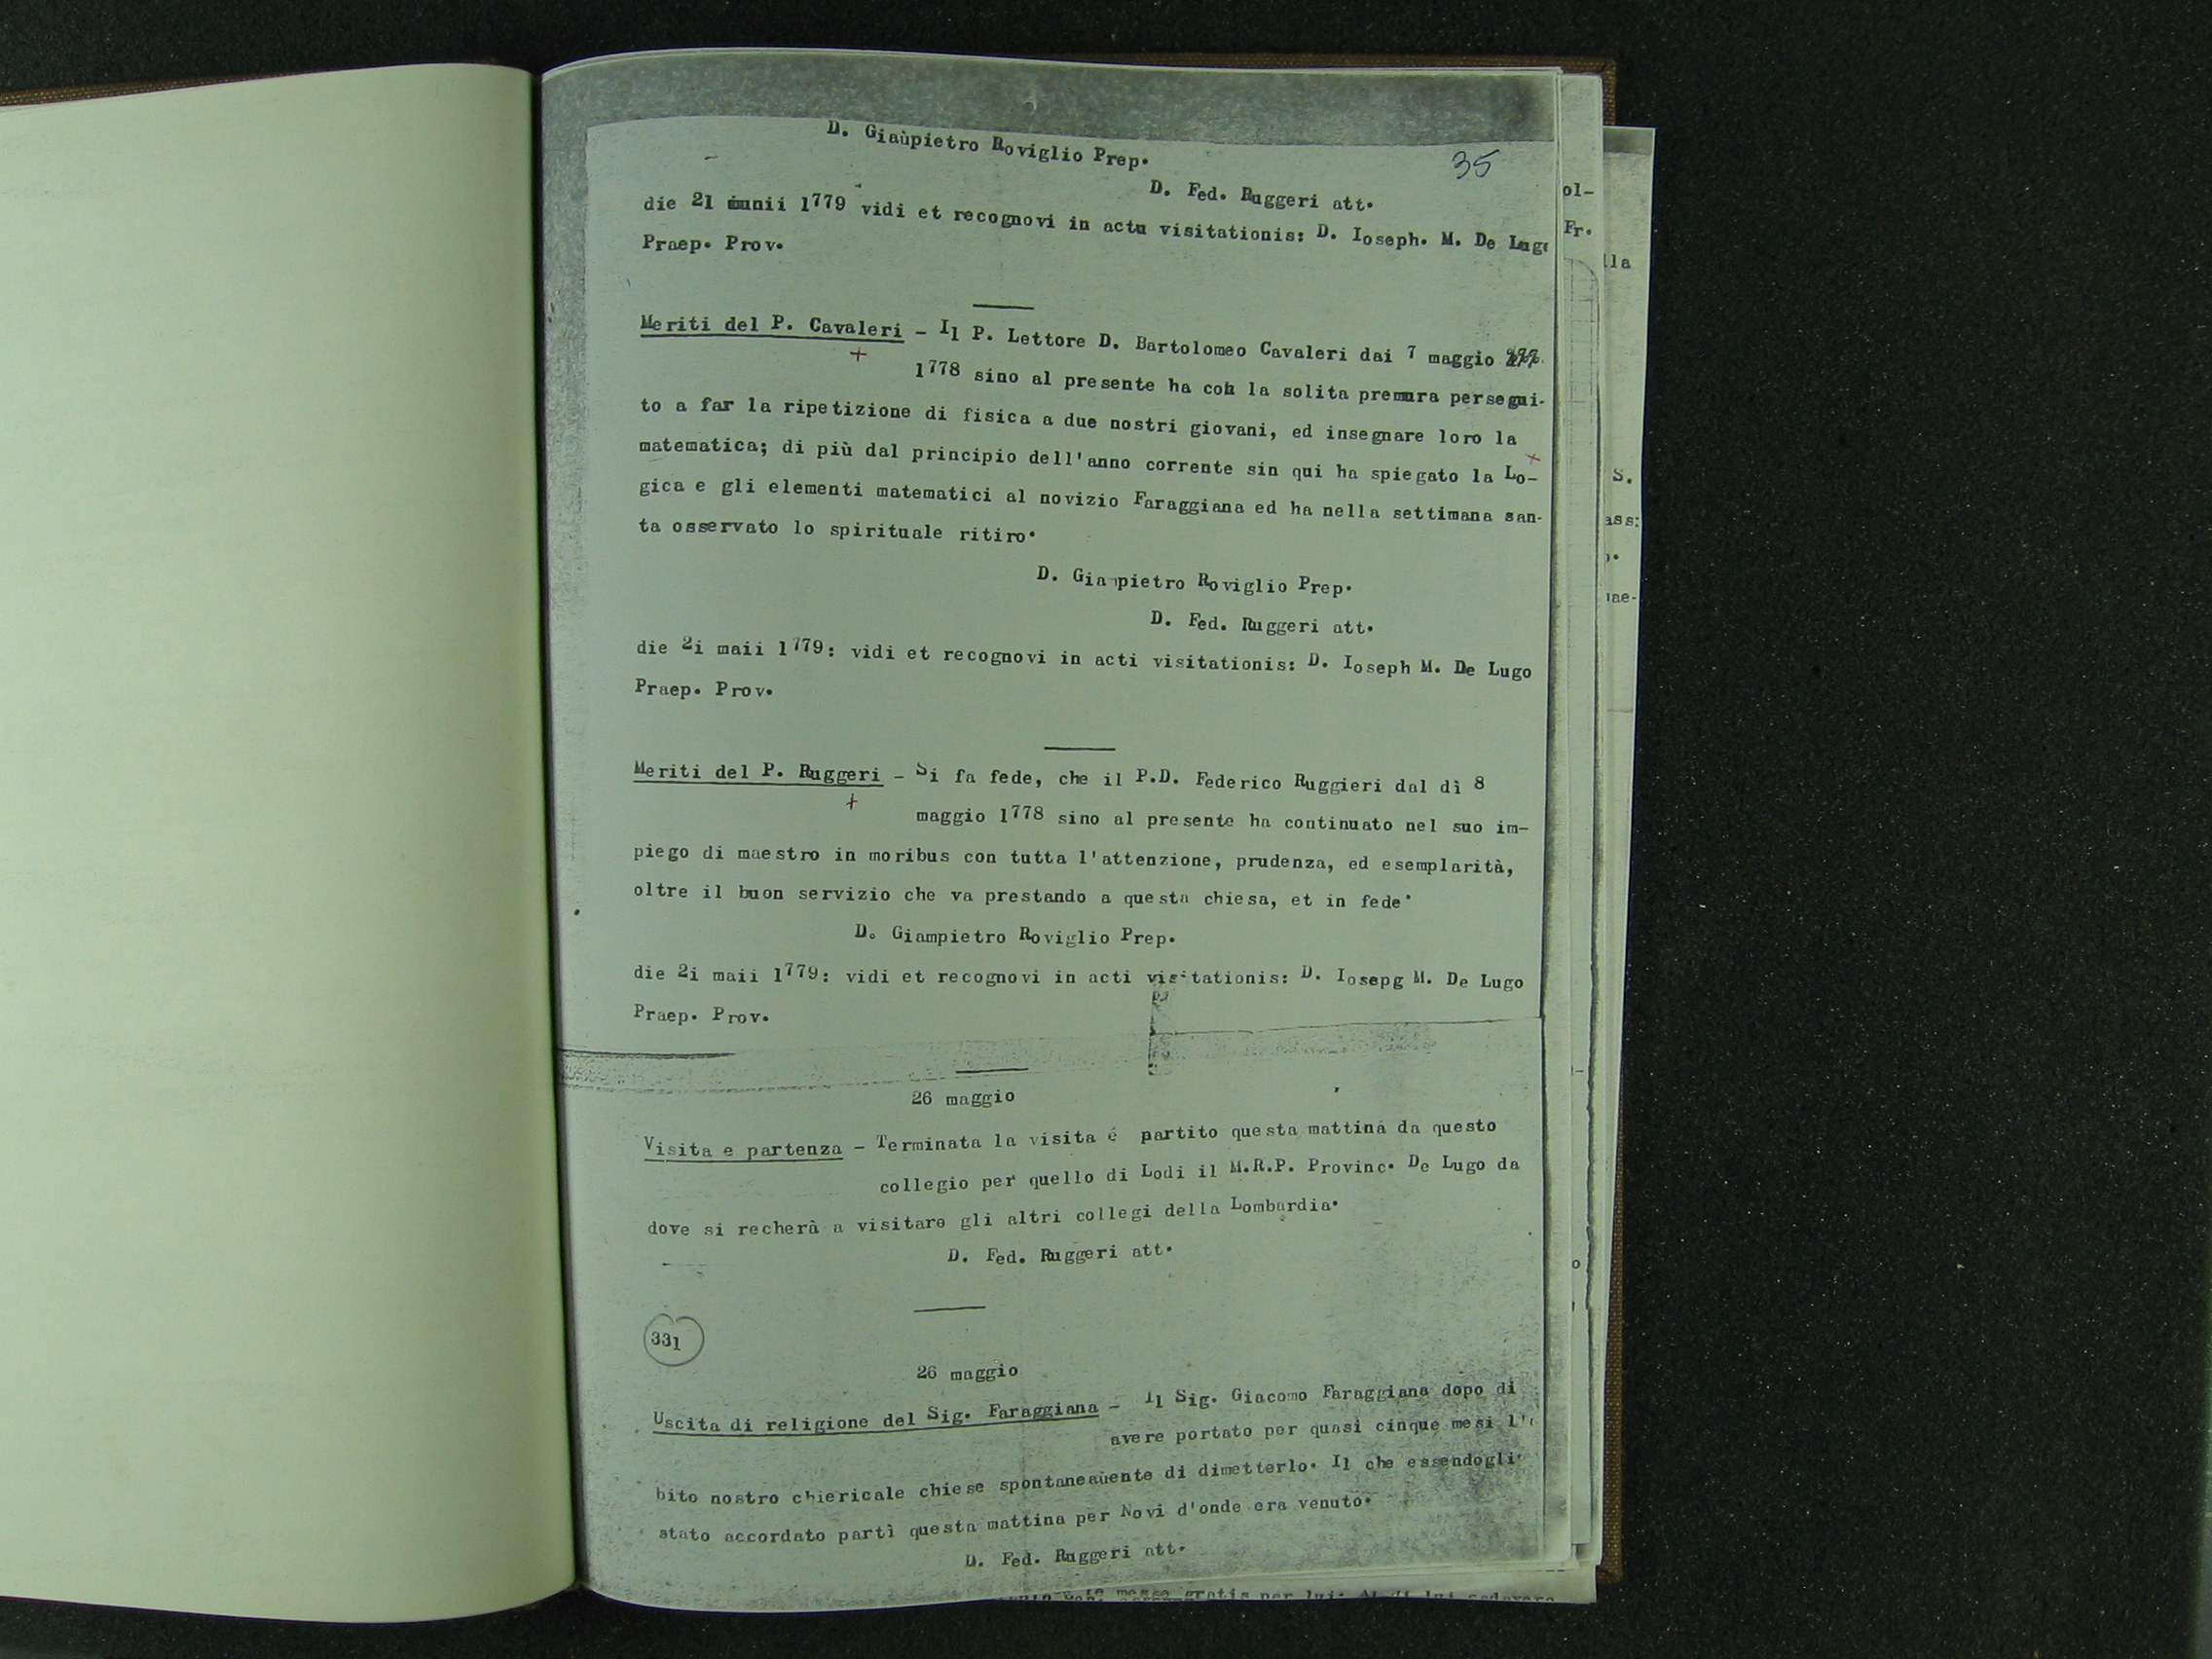 D. Giaùpietro Roviglio Prep.
35
D. Fed. Ruggeri att.
die 21 iunii 1779 vidi et recognovi in actu visitationis: D. Ioseph. M. De Lugo
Praep. Prov.
Meriti del P. Cavaleri - Il P. Lettore D. Bartolomeo Cavaleri dai 7 maggio
1778 sino al presente ha con la solita premura persegui-
to a far la ripetizione di fisica a due nostri giovani, ed insegnare loro la
matematica; di più dal principio dell'anno corrente sin qui ha spiegato la Lo-
gica e gli elementi matematici al novizio Faraggiana ed ha nella settimana san-
ta osservato lo spirituale ritiro.
D. Giampietro Roviglio Prep.
D. Fed. Ruggeri att.
die 2i maii 1779: vidi et recognovi in acti visitationis: D. Ioseph M. De Lugo
Praep. Prov.
Meriti del P. Ruggeri - Si fa fede, che il P.D. Federico Ruggieri dal dì 8
maggio 1778 sino al presente ha continuato nel suo im-
piego di maestro in moribus con tutta l'attenzione, prudenza, ed esemplarità,
oltre il buon servizio che va prestando a questa chiesa, et in fede.
D. Giampietro Roviglio Prep.
die 2i maii 1779: vidi et recognovi in acti visitationis: D. Iosepg M. De Lugo
Praep. Prov.
26 maggio
Visita e partenza - Terminata la visita é partito questa mattina da questo
collegio per quello di Lodi il M.R.P. Provinc. De Lugo da
dove si recherà a visitare gli altri collegi della Lombardia.
D. Fed. Ruggeri att.
331
26 maggio
Uscita di religione del Sig. Faraggiana - Il Sig. Giacomo Faraggiana dopo di
avere portato per quasi cinque mesi l'
bito nostro chiericale chiese spontaneaùente di dimetterlo. Il che essendogli
stato accordato partì questa mattina per Novi d'onde era venuto.
D. Fed. Ruggeri att.